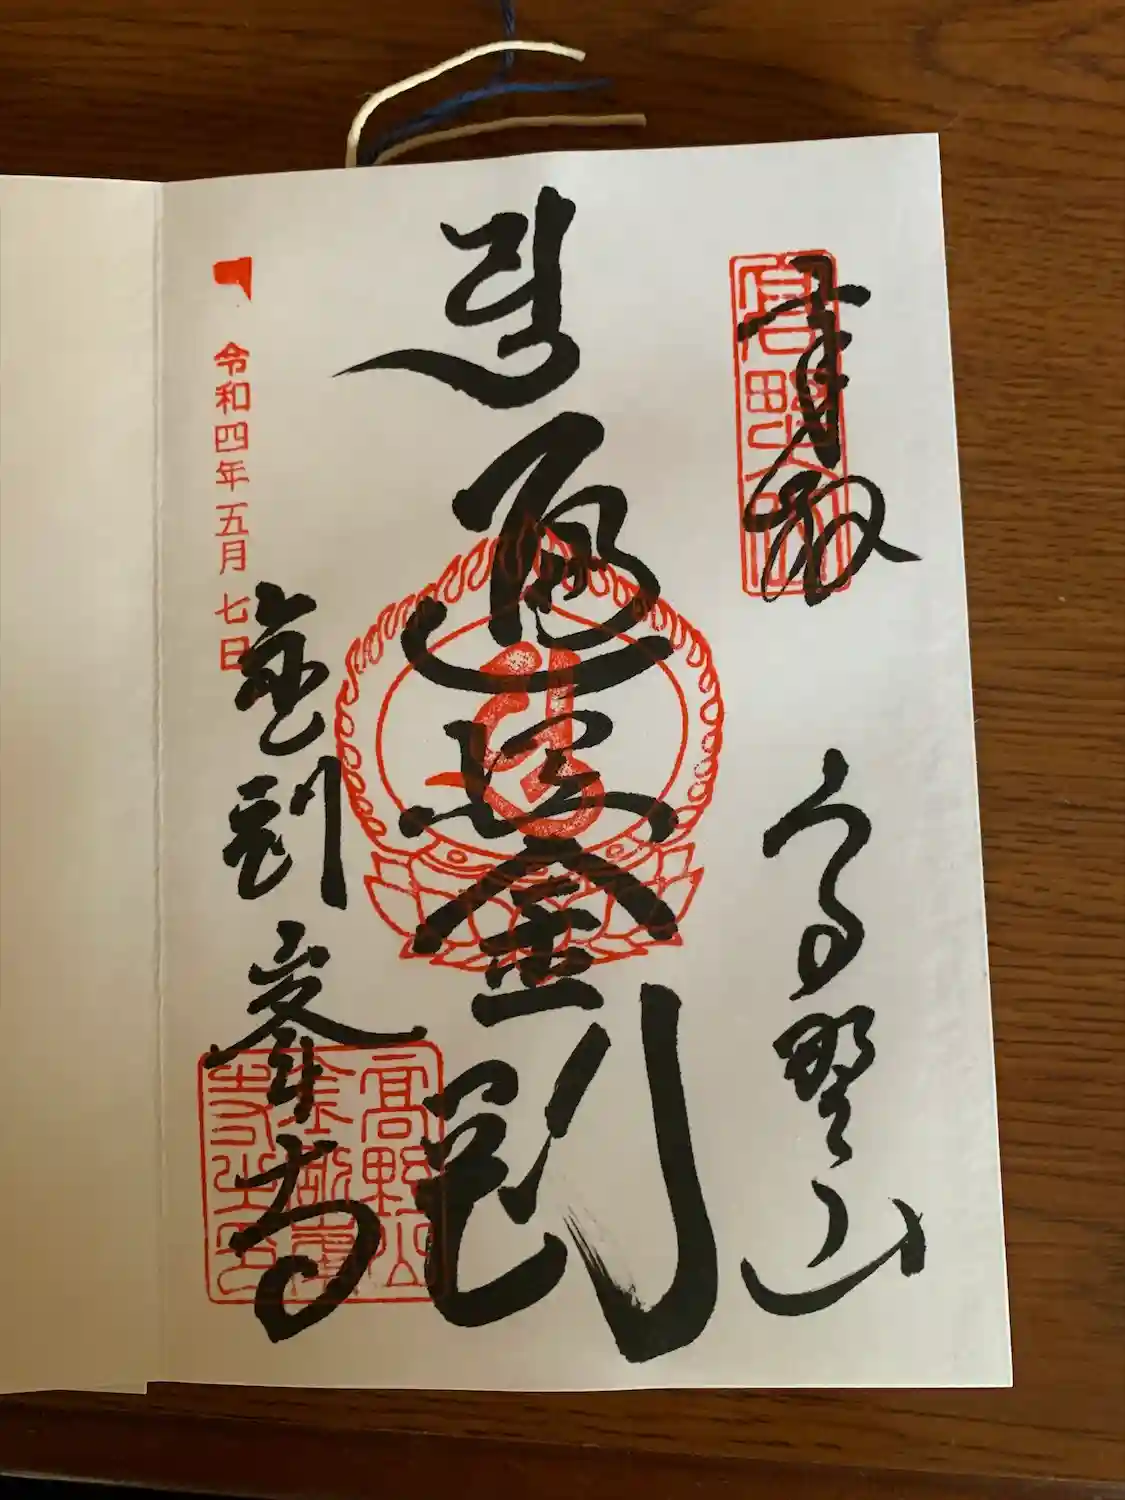 奉拝
高野山
遍照金剛
令和四年五月七日
金剛峯寺
高野山
金剛峯
寺之印